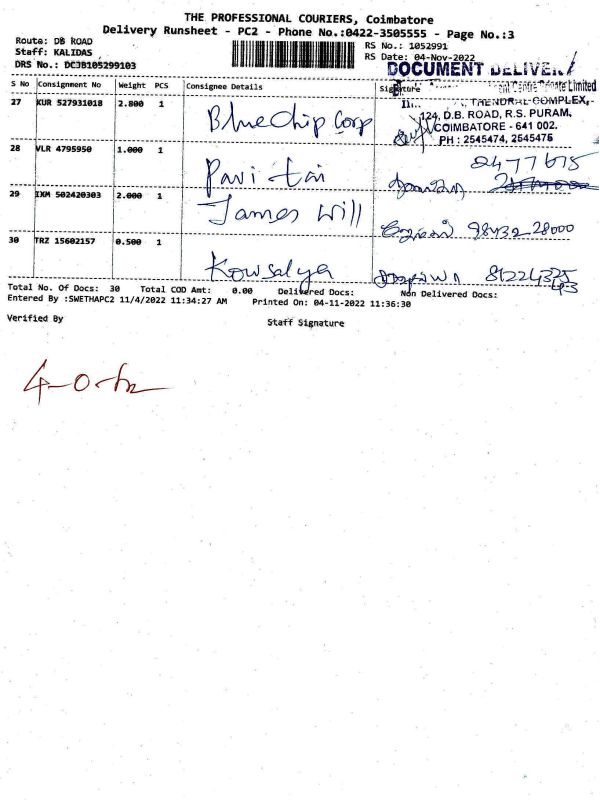 THE PROFESSIONAL COURIERS, Coimbatore
Delivery Runsheet - PC2 - Phone No.:0422-3505555 - Page No.:3
Route: DB ROAD
Staff: KALIDAS
DRS No.: DCJB105299103
RS No.: 1052991
RS Date: 04-Nov-2022
DOCUMENT DELIVERY
S No Consignment No Weight PCS Consignee Details Signature
Centre Private Limited
THENDRAL COMPLEX,
124, D.B. ROAD, R.S. PURAM,
COIMBATORE - 641 002.
PH : 2545474, 2545476
27 KUR 527931018 2.800 1 Blue Chip Corp
28 VLR 4795950 1.000 1 Pavi
29 IXM 502420303 2.000 1 James Will 98432 28000
30 TRZ 15602157 0.500 1 Kowsalya
Total No. Of Docs: 30 Total COD Amt: 0.00 Delivered Docs: Non Delivered Docs:
Entered By :SWETHAPC2 11/4/2022 11:34:27 AM Printed On: 04-11-2022 11:36:30
Verified By Staff Signature